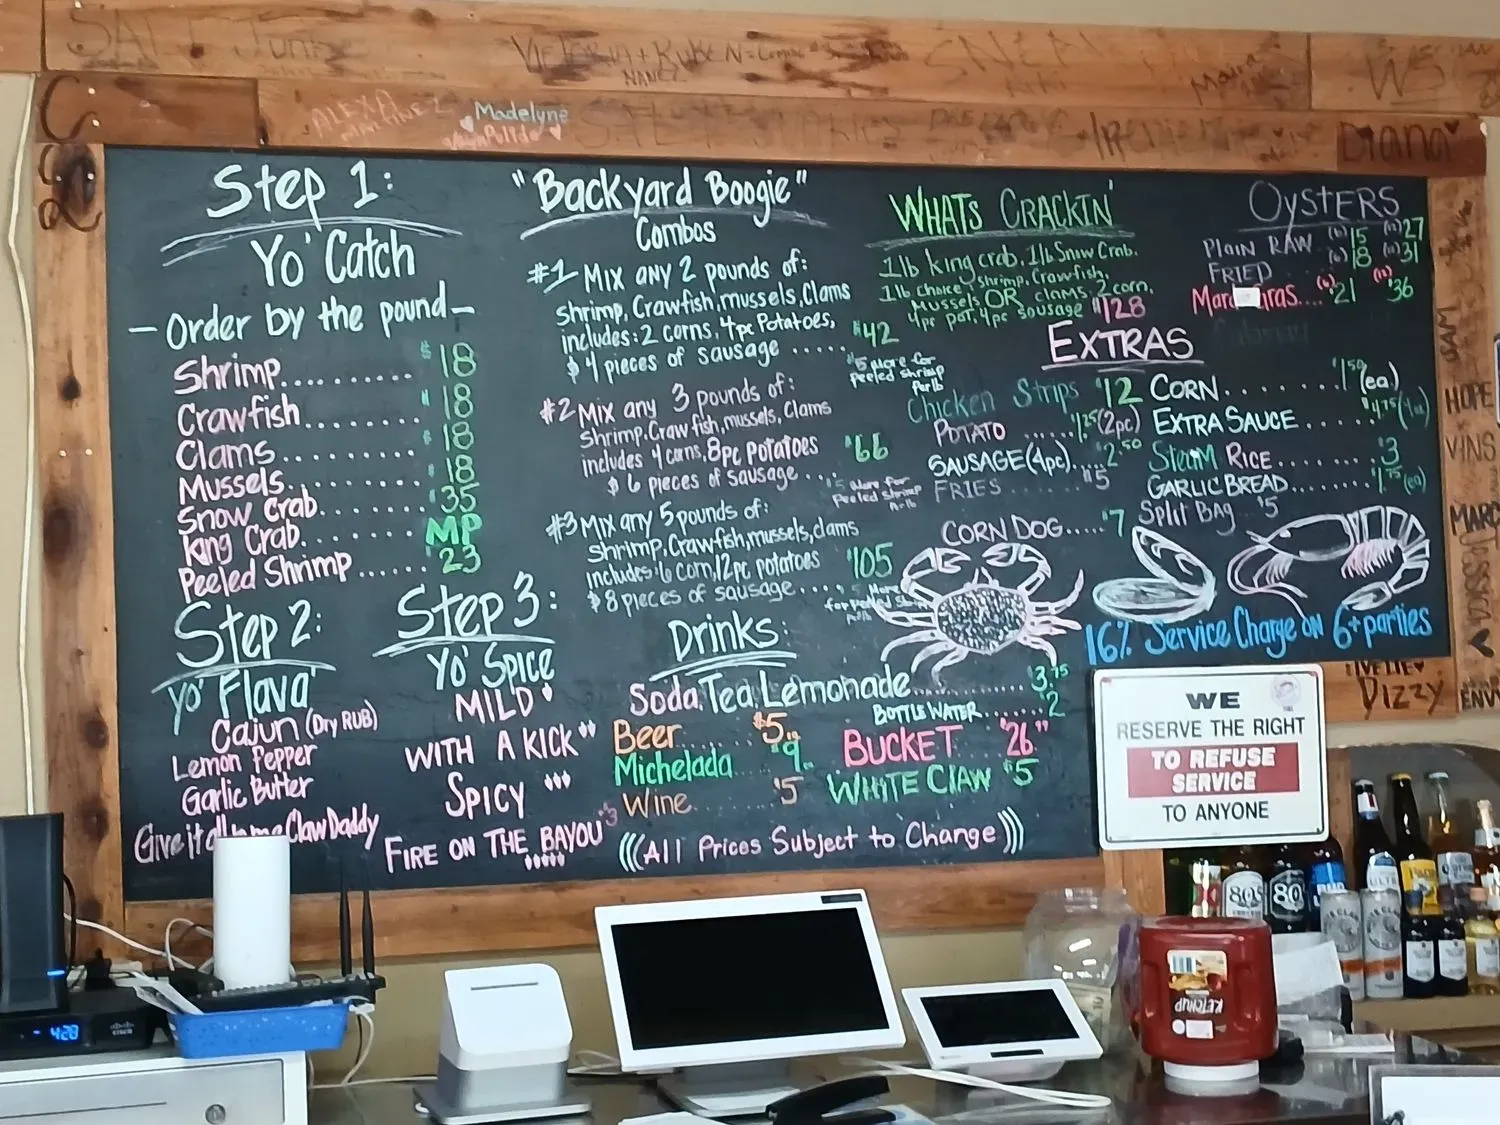 VICTORIA + RUBEN
NANCY
ALEXA
MARTINEZ
Madelyne
Diana
Step 1:
Yo' Catch
- Order by the pound -
Shrimp.......... $18
Crawfish........ $18
Clams.......... $18
Mussels......... $18
Snow Crab........ $35
King Crab........ MP
Peeled Shrimp...... $23
Step 2:
Yo' Flava'
Cajun (Dry RUB)
Lemon Pepper
Garlic Butter
Give it all to me Claw Daddy
Step 3:
Yo' Spice
MILD
WITH A KICK
SPICY
FIRE ON THE BAYOU $3
"Backyard Boogie"
Combos
#1 Mix any 2 pounds of:
shrimp, Crawfish, mussels, Clams
includes: 2 corns, 4pc Potatoes,
$ 4 pieces of sausage ..... $42
$5 More for
peeled shrimp
Per lb
#2 Mix any 3 pounds of:
Shrimp, Crawfish, mussels, Clams
includes 4 corns, 8pc potatoes
$ 6 pieces of sausage ... $66
$5 more for
Peeled shrimp
Per lb
#3 Mix any 5 pounds of:
shrimp, Crawfish, mussels, clams
includes: 6 corn, 12pc potatoes
$ 8 pieces of sausage.... $105
$5 More
for peeled shrimp
Per lb
WHATS CRACKIN'
1lb king crab, 1lb Snow Crab.
1lb choice: shrimp, Crawfish,
Mussels OR clams. 2 corn,
4pc pot, 4pc sausage $128
OYSTERS
Plain RAW (6) $15 (12) $27
FRIED (6) $18 (12) $31
Mardi Gras.... (6) $21 (12) $36
EXTRAS
Chicken Strips $12
POTATO ..... $1.25 (2pc)
SAUSAGE (4pc). $2.50
FRIES ....... $5
CORN DOG..... $7
CORN....... $1.50 (ea.)
EXTRA SAUCE...... $4.75 (4oz)
Steam RICE........ $3
GARLIC BREAD....... $1.75 (ea)
Split Bag $5
16% Service Charge on 6+ parties
Drinks:
Soda, Tea, Lemonade.......... $3.75
BOTTLE WATER....... $2
Beer ....... $5
Michelada ... $9
Wine ....... $5
BUCKET $26
WHITE CLAW $5
(((All Prices Subject to Change)))
HOPE
VINS
Dizzy
ENVY
WE
RESERVE THE RIGHT
TO REFUSE
SERVICE
TO ANYONE
KETCHUP
4:28
CISCO